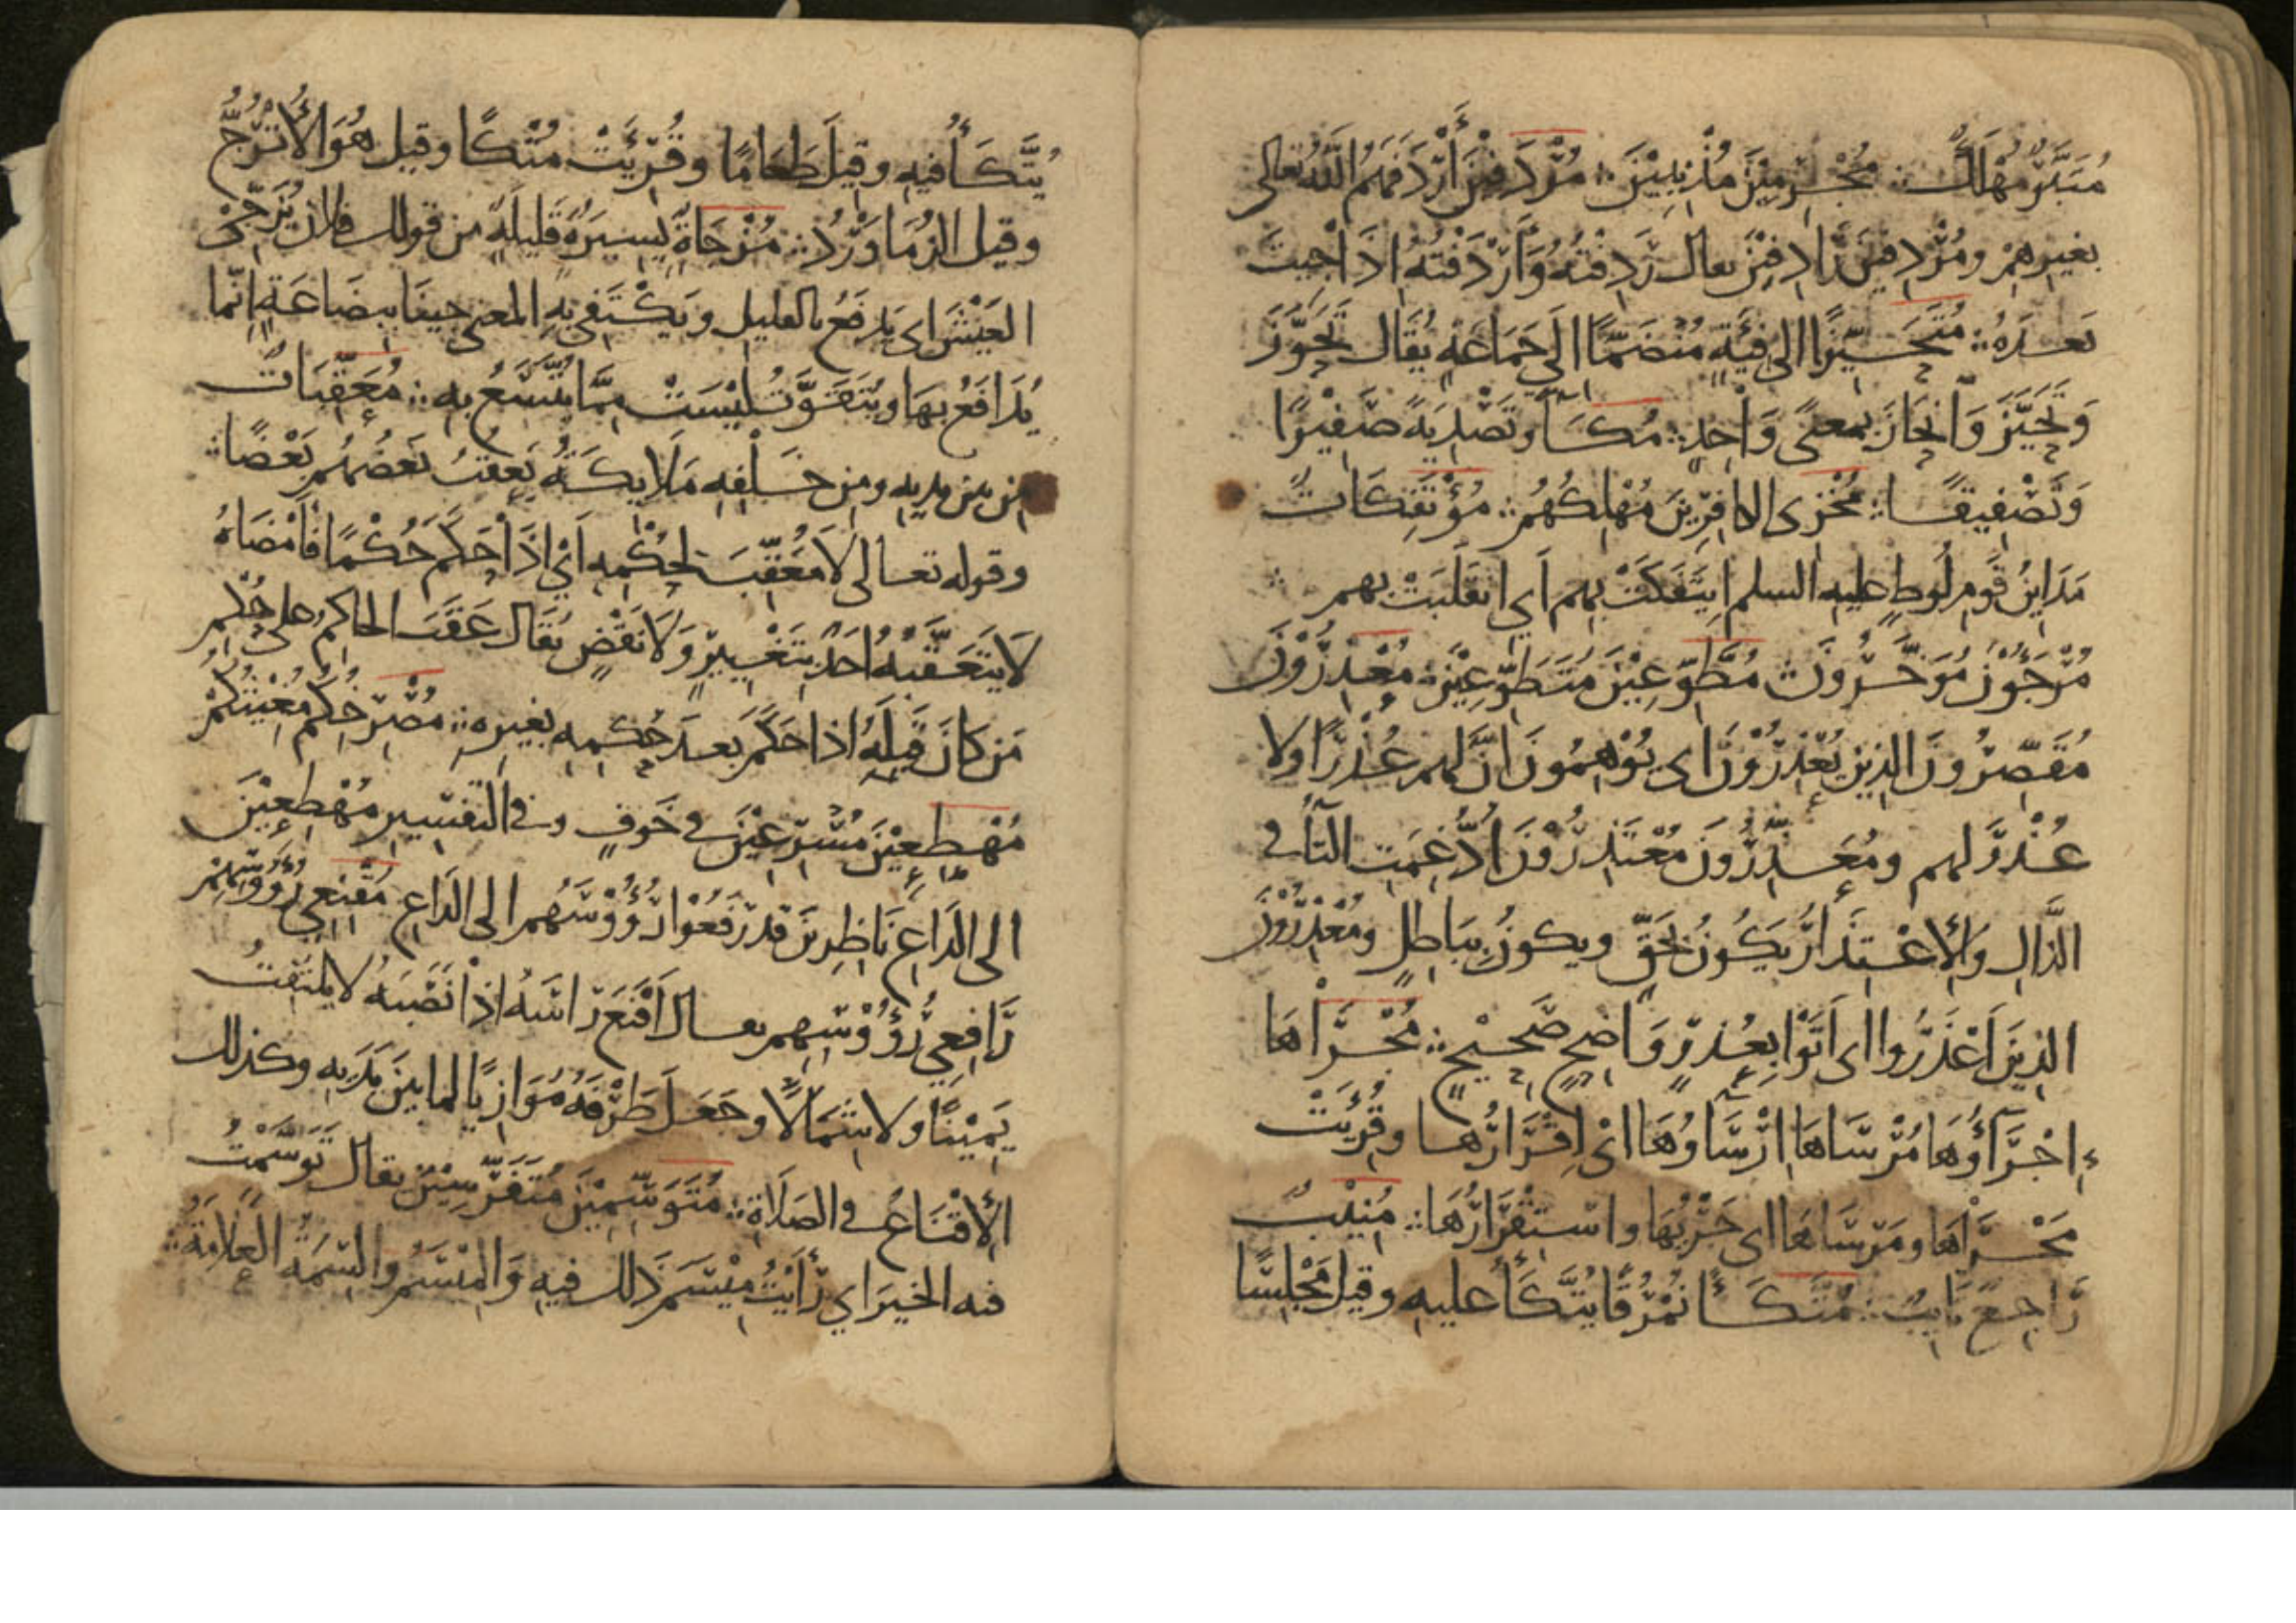 مُتَبَّرٌ مُهْلَكٌ ∴ مُجْرِمِيْنَ مُذْنِبِيْنَ ∴ مُرْدَفِيْنَ أَرْدَفَهُمُ اللهُ تعالى
بغيرهِمْ ومُرْدِفِيْنَ رَادِفِيْنَ يقال رَدِفْتُهُ وَأَرْدَفْتُهُ اذَا جِيتَ
بَعْدَهُ ∴ مُتَحَيِّزًا الى فِيَةٍ مُنْضَمًّا الَى جَمَاعَةٍ يُقَال تَحَوَّزَ
وَتَحَيَّزَ وَانْحَازَ بمعنًى وَاحِدٍ ∴ مُكَآءً وتَصْدِيَةً صَفِيْرًا
وَتَصْفِيقًا ∴ مُخْزِى الكافِرِيْنَ مُهْلِكُهُمْ ∴ مُؤْتَفِكَاتٌ
مَدَايِنُ قَوْمِ لُوطٍ عليه السلم ايتَفَكَتْ بهم اَي انقَلَبَتْ بهم ∴
مُرْجَوْنَ مُوَخَّرُونَ ∴ مُطَّوِّعِيْنَ مُتَطَوِّعِيْنَ ∴ مُعَذِّرُوْنَ
مُقَصِّرُونَ الذين يُعَذِّرُوْنَ اى يُوْهِمُونَ انَّ لهم عُذْرًا ولا
عُذْرَ لهم ومُعَذِّرُونَ مُعْتَذِرُوْنَ اُدْغِمَتِ التَّآءُ في
الذَّالِ وَالإِعْتِذَارُ يَكُونُ بِحَقٍّ ويكونُ بِبَاطِلٍ ومُعْذِرُوْنَ
الذِينَ اَعْذَرُوا اى اَتَوْا بِعُذْرٍ وَاضِحٍ صَحِيْحٍ ∴ مُجْرَاهَا
إِجْرَآؤُهَا مُرْسَاهَا ارْسَآوُهَا اىْ اِقْرَارُهَا وقُرِيَتْ
مَجْرَاهَا ومَرْسَاهَا اى جَرْيُهَا واسْتِقْرَارُهَا ∴ مُنِيْبٌ
رَاجِعٌ تَايِبٌ ∴ مُتَّكَأً نُمْرُقًا يُتَّكَأُ عليهِ وقيلَ مَجْلِسًا
يُتَّكَأُ فيهِ وقيلَ طَعَامًا وقُرِيَتْ مُتْكًا وقيل هُوَ الأُتْرُجُّ
وقيل الزُمَاوَرْدُ ∴ مُزْجَاةٍ يَسِيرَةٍ قَلِيلَةٍ من قولك فلانٌ يُزَجِّى
العَيْشَ اى يَدفَعُ بالقليل ويَكْتَفِي بِهِ المعنى جِينَا بِبِضَاعَةٍ انَّمَا
يُدَافَعُ بهَا ويُتَقَوَّتُ لَيْسَتْ مِمَّا يُتَّسَعُ بِهِ ∴ مُعَقِّبَاتٌ
مِن بين يديهِ ومِن خَلْفِهِ مَلَايِكَةٌ يَعقُبُ بَعضُهُم بَعْضًا ∴
وقوله تعالى لَا مُعَقِّبَ لِحُكْمِهِ اَيْ اذَا حَكَمَ حُكْمًا فَأَمْضَاهُ
لَا يَتَعَقَّبُهُ احَدٌ بِتَغْيِيرٍ وَلَا نَقْضٍ يُقَال عَقَّبَ الحاكِمُ على حُكْمِ
مَن كَانَ قَبلَهُ اذا حَكَمَ بَعدَ حُكمِهِ بغيرِهِ ∴ مُصْرِخِكُم مُغِيْثِكُمْ
مُهْطِعِيْنَ مُسْرِعِيْنَ في خَوفٍ وفي التَفسِيرِ مُهْطِعِيْنَ
الى الدَّاعِ نَاظِرِينَ قد رَفَعُوْا رُؤُوْسَهُم الى الدَاعِ مُقْنِعِي رُؤُوْسِهِمْ
رَافِعِي رُؤُوْسِهِم يقال اَقْنَعَ رَاسَهُ اذا نَصَبَهُ لا يلتفتُ
يَمِيْنًا ولا شِمَالًا وجَعَلَ طَرْفَهُ مُوَازِيًا لما بينَ يَدَيهِ وكذلك
الإِقْنَاعُ في الصَلَاةِ ∴ مُتَوَسِّمِيْنَ مُتَفَرِّسِيْنَ يقال تَوَسَّمْتُ
فيه الخيرَ اي رَأَيْتُ مِيْسَمَ ذَلك فيهِ وَالمِيْسَمُ والسِّمَةُ العَلَامَةُ ∴